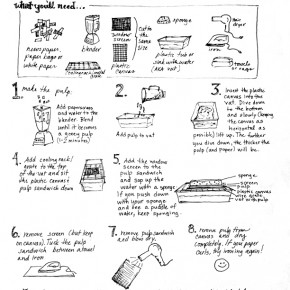 what you'll need...
newspaper,
paper bags or
white paper
blender
window
screen
plastic
canvas
cut to the
same
size
sponge
plastic tub or
sink with water
(AKA vat)
hair
dryer
iron
towels or
1. made the pulp:
Add paper
and water to the
blender. Blend
until it becomes
a green pulp
(1-2 minutes)
2.
Add pulp to vat
3. Insert the plastic
canvas into the
vat. Dive down
to the bottom
and slowly (keeping
the canvas as
horizontal as
possible) lift up. The further
you dive down, the thicker the
pulp (and paper) will be.
4. Add cooling rack/
grate to the top
of the vat and sit
the plastic canvas/
pulp sandwich down
5. Add the window
screen to the
pulp sandwich
and sop up the
water with a sponge.
If you push down
with your sponge
and see a puddle of
water, keep sponging.
sponge
screen
pulp
plastic canvas
6. remove screen (but keep
on canvas). Tuck the pulp
sandwich between a towel
and iron
7. remove pulp sandwich
and blow dry
8. remove pulp from
canvas and dry
completely. If you paper
curls, try ironing again!